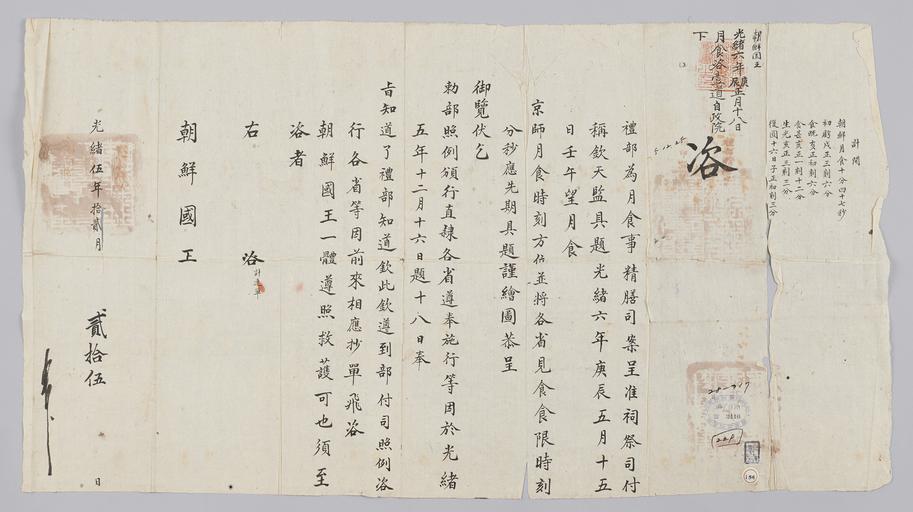 計開
朝鮮月食十分四十七秒
初虧戌正三刻六分
食既亥正初刻六分
食甚亥正一刻十二分
生光亥正三刻三分
復圓十六日子正初刻三分
朝鮮國王
光緒六年庚辰正月十八日
月食咨
道自政院
下
咨
禮部為月食事精膳司案呈准祠祭司付
稱欽天監具題光緒六年庚辰五月十五
日壬午望月食
京師月食時刻方位並將各省見食食限時刻
分秒應先期具題謹繪圖恭呈
御覽伏乞
勅部照例頒行直隸各省遵奉施行等因於光緒
五年十二月十六日題十八日奉
旨知道了禮部知道欽此欽遵到部付司照例咨
行各省等因前來相應抄單飛咨
朝鮮國王一體遵照救護可也須至
咨者
右咨
計連單
朝鮮國王
光緒伍年拾貳月貳拾伍日